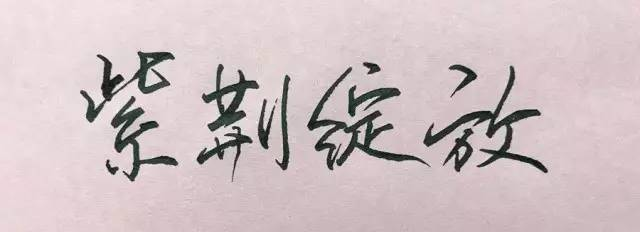 紫荆绽放